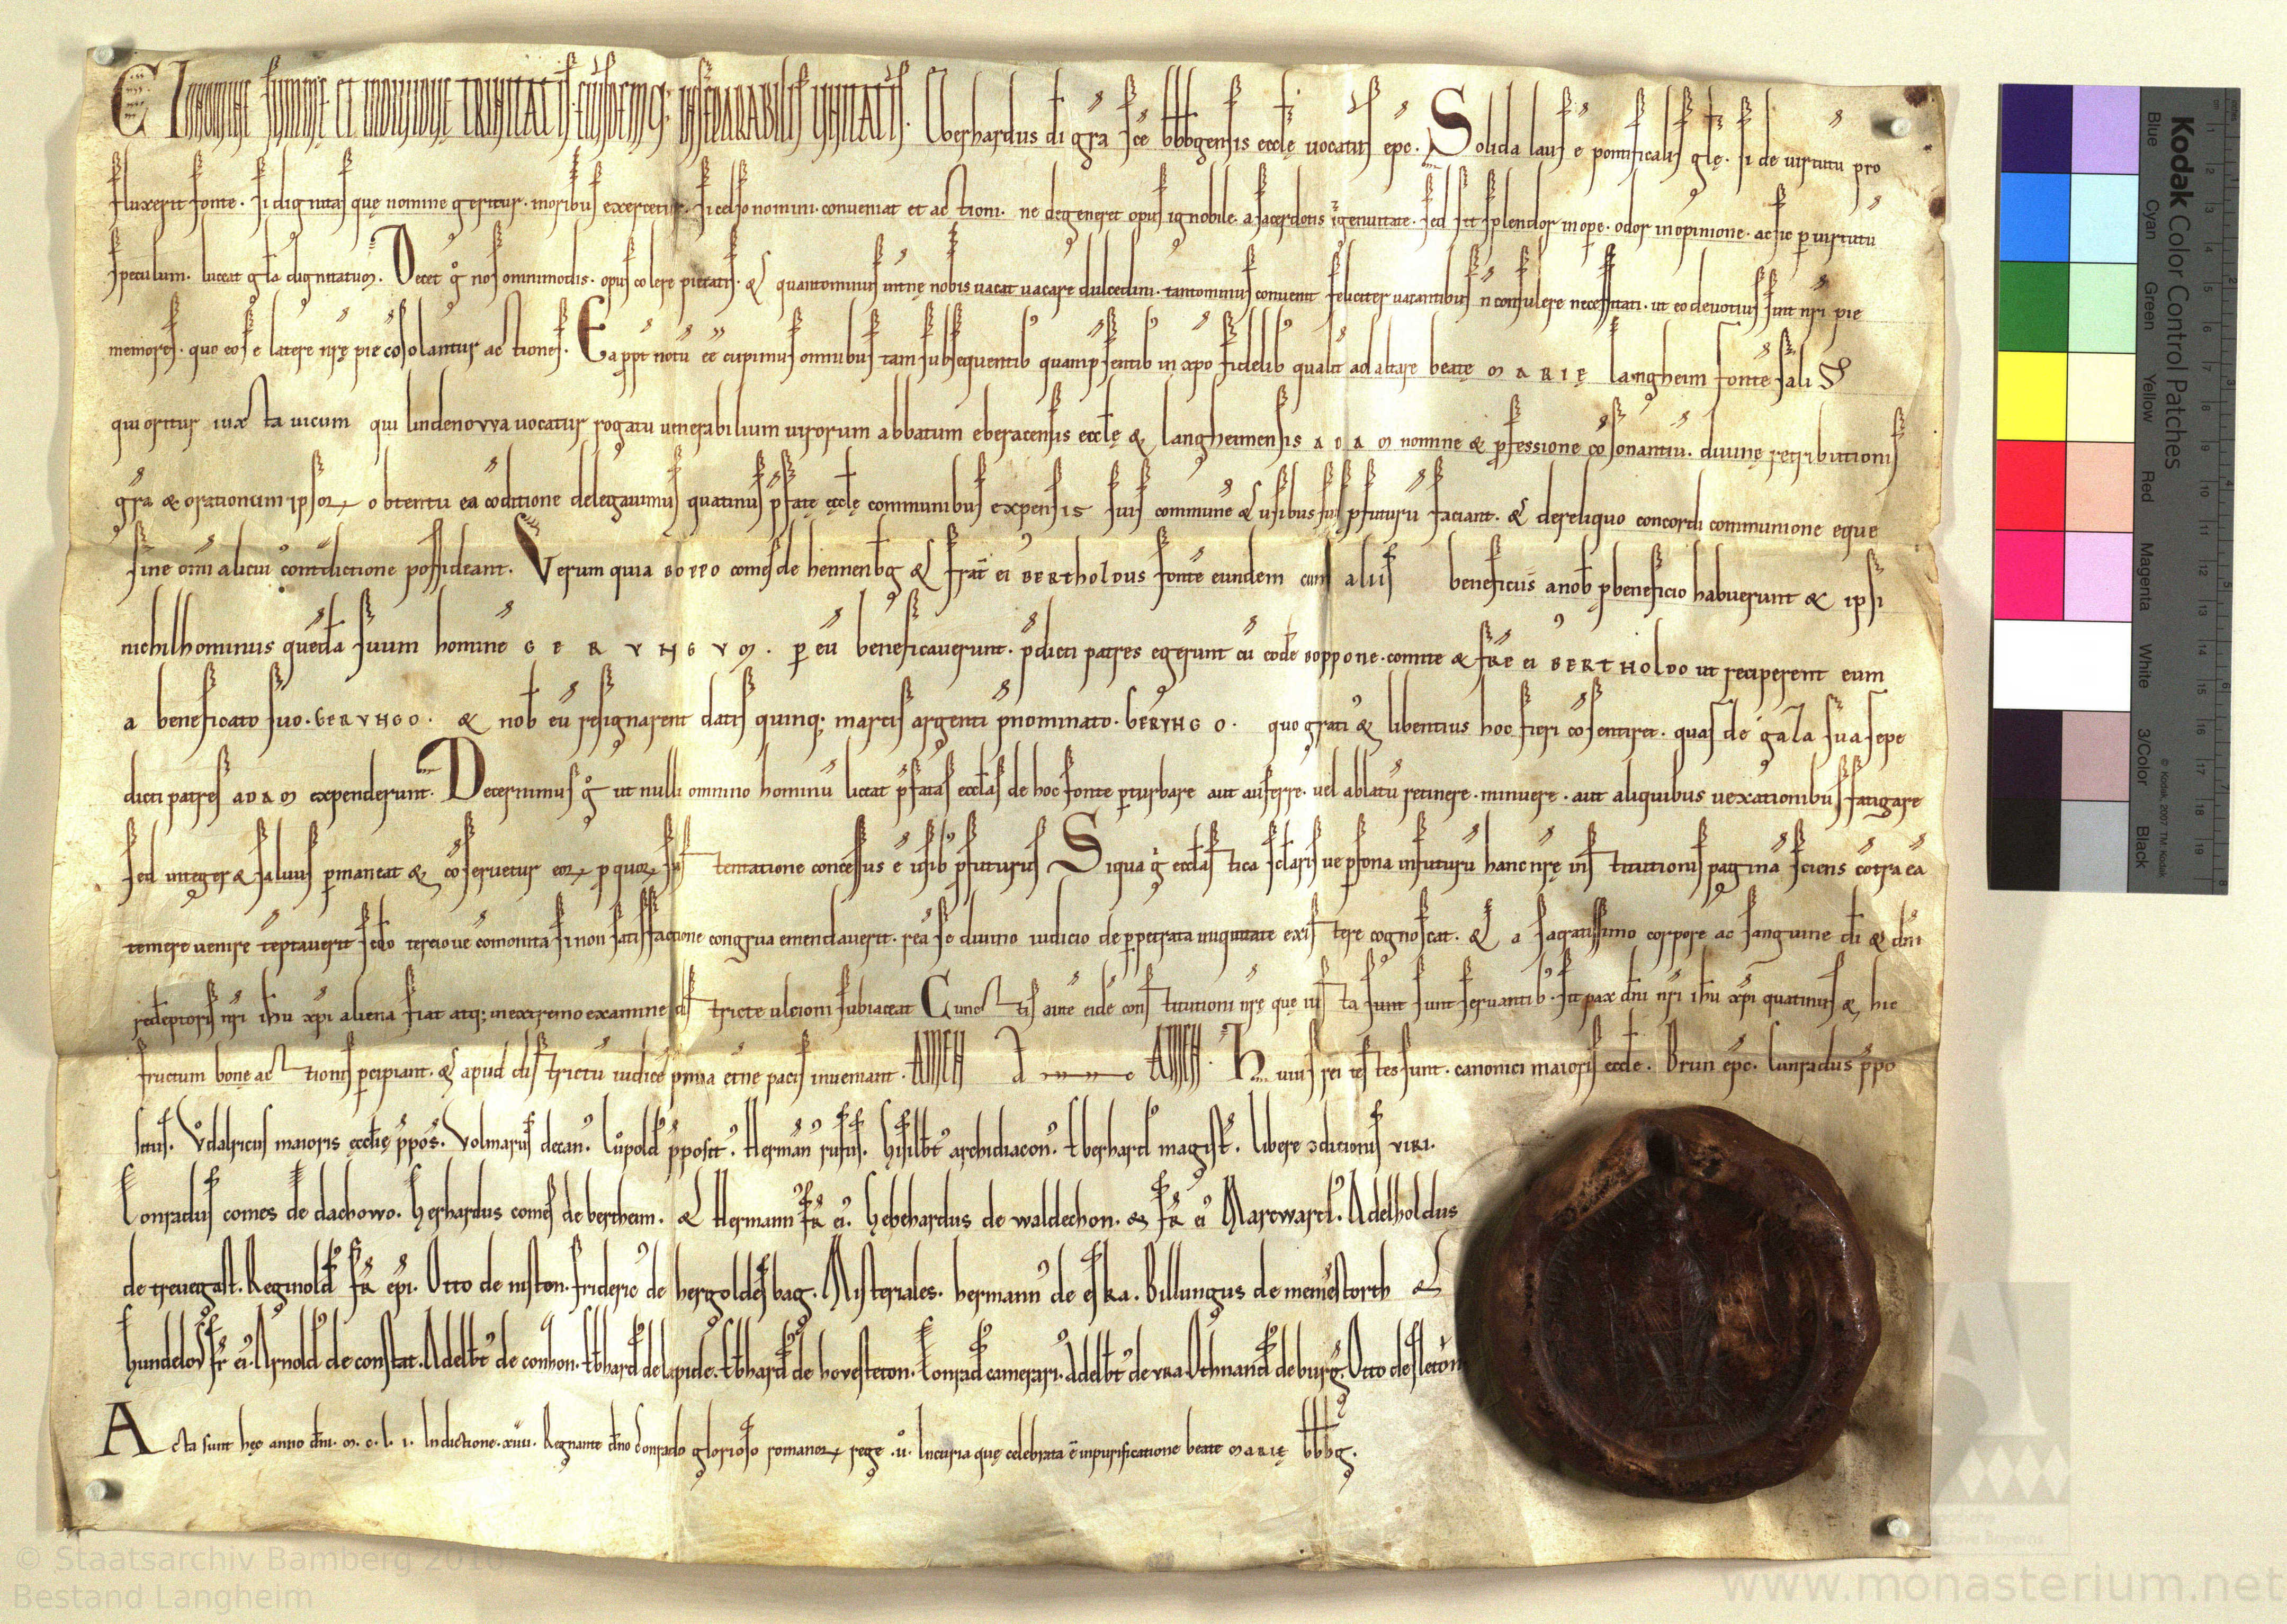 IN NOMINE SUMMĘ ET INDIVIDUĘ TRINITATIS EIUSDEMQ; INSEPARABILIS UNITATIS. Eberhardus di gra sce bbbgensis ecclę uocatus epc. Solida laus e pontificalis glę. si de uirtutu pro
fluxerit fonte. si dignitas quę nomine geritur. moribus exercetur. si celso nomini conueniat et actioni. ne degeneret opus ignobile a sacerdotis igenuitate. sed sit splendor in ope. odor in opinione. ac sic p uirtutu
speculum. luceat gla dignitatum. Decet g nos omnimodis. opus colere pietatis. & quantominus intne nobis uacat uacare dulcedini. tantominus conuenit feliciter uacantibus n consulere necessitati. ut eo deuotius sint nri pie
memores. quo eos e latere nrę pie cosolantur actiones. Ea ppt notu ee cupimus omnibus tam subsequentib quam psentib in xpo fidelib qualit ad altare beatę MARIĘ langheim fonte salis
qui oritur iuxta uicum qui lindenowa uocatur rogatu uenerabilium uirorum abbatum eberacensis ecclę & langheimensis ADAM nomine & pfessione cosonantiu. diuinę retributionis
gra & orationum ipsor obtentu ea coditione delegauimus quatinus pfatę ecclę communibus expensis suis commune & usibus suis pfuturu faciant. & de reliquo concordi communione eque
sine omi alicui contdictione possideant. Verum quia BOPPO comes de hennenbg & frat ei BERTHOLDUS fonte eundem cum aliis beneficiis a nob p beneficio habuerunt & ipsi
nichilhominus queda suum homine GERUNGUM. p eu beneficauerunt. pdicti patres egerunt cu eode BOPPONE. comite & fre ei BERTHOLDO ut reciperent eum
a beneficato suo. GERUNGO. & nob eu resignarent datis quinq; marcis argenti pnominato. GERUNGO. quo grati & libentius hoc fieri cosentiret. quas de gala sua sepe
dicti patres ADAM expenderunt. Decernimus g ut nulli omnino hominu liceat pfatas ecclas de hoc fonte pturbare aut auferre. uel ablatu retinere. minuere. aut aliquibus uexationibus fatigare
sed integer & saluus pmaneat & coseruetur eor p quor sustentatione concessus e usib pfuturus Siqua g ecclastica sclaris ue psona in futuru hanc nrę institutionis pagina sciens cotra ea
temere uenire teptauerit scdo tercioue comonita si non satisfactione congrua emendauerit. rea se diuino iudicio de ppetrata iniquitate existere cognoscat. & a sacratissimo corpore ac sanguine di & dni
redeptoris nri ihu xpi aliena fiat atq; in extremo examine districte ulcioni subiaceat Cunctis aute eide constitutioni nrę quę iusta sunt seruantib. sit pax dni nri ihu xpi quatinus & hic
fructum bonę actionis pcipiant. & apud districtu iudice pmia etne pacis inueniant. AMEN AMEN. Huius rei testes sunt. canonici maioris eccle. Brun epc. Cunradus ppo
situs. Udalricus maioris ecclię ppos. Volmarus decan. Lupold pposit. Herman rufus. Hisilbt archidiacon. Eberhard magist. Libere 3dicionis viri.
Conradus comes de dachowo. Gerhardus comes de bertheim. & Hermann fr ei. Gebehardus de waldechon. & fr ei Marcward. Adelholdus
de treuegast. Reginold fr epi. Otto de niston. frideric de hergoldesbag. Misteriales. hermann de eska. Billungus de memestorth &
hundeloh fr ei. Arnold de constat. Adelbt de conhon. Ebhard de lapide. Ebhard de houesteton. Conrad camerari. Adelbt de vra Othnand de burg. Otto de sleton
Acta sunt hęc anno dni. M. c. l. i. Indictione. xiiii. Regnante dno Conrado glorioso romanor rege. In curia quę celebrata e in purificatione beate MARIĘ bbbg.
Kodak Color Control Patches
Blue Cyan Green Yellow Red Magenta White 3/Color Black
© Kodak, 2007 TM: Kodak
© Staatsarchiv Bamberg 2010
Bestand Langheim
www.monasterium.net